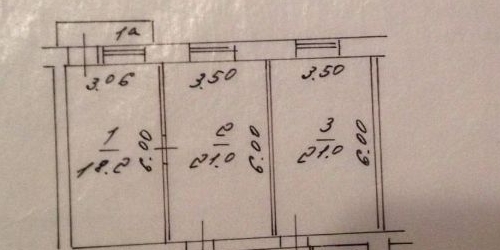 1a
3.06 3.50 3.50
1 2 3
18.2 6.00 21.0 6.00 21.0 6.00